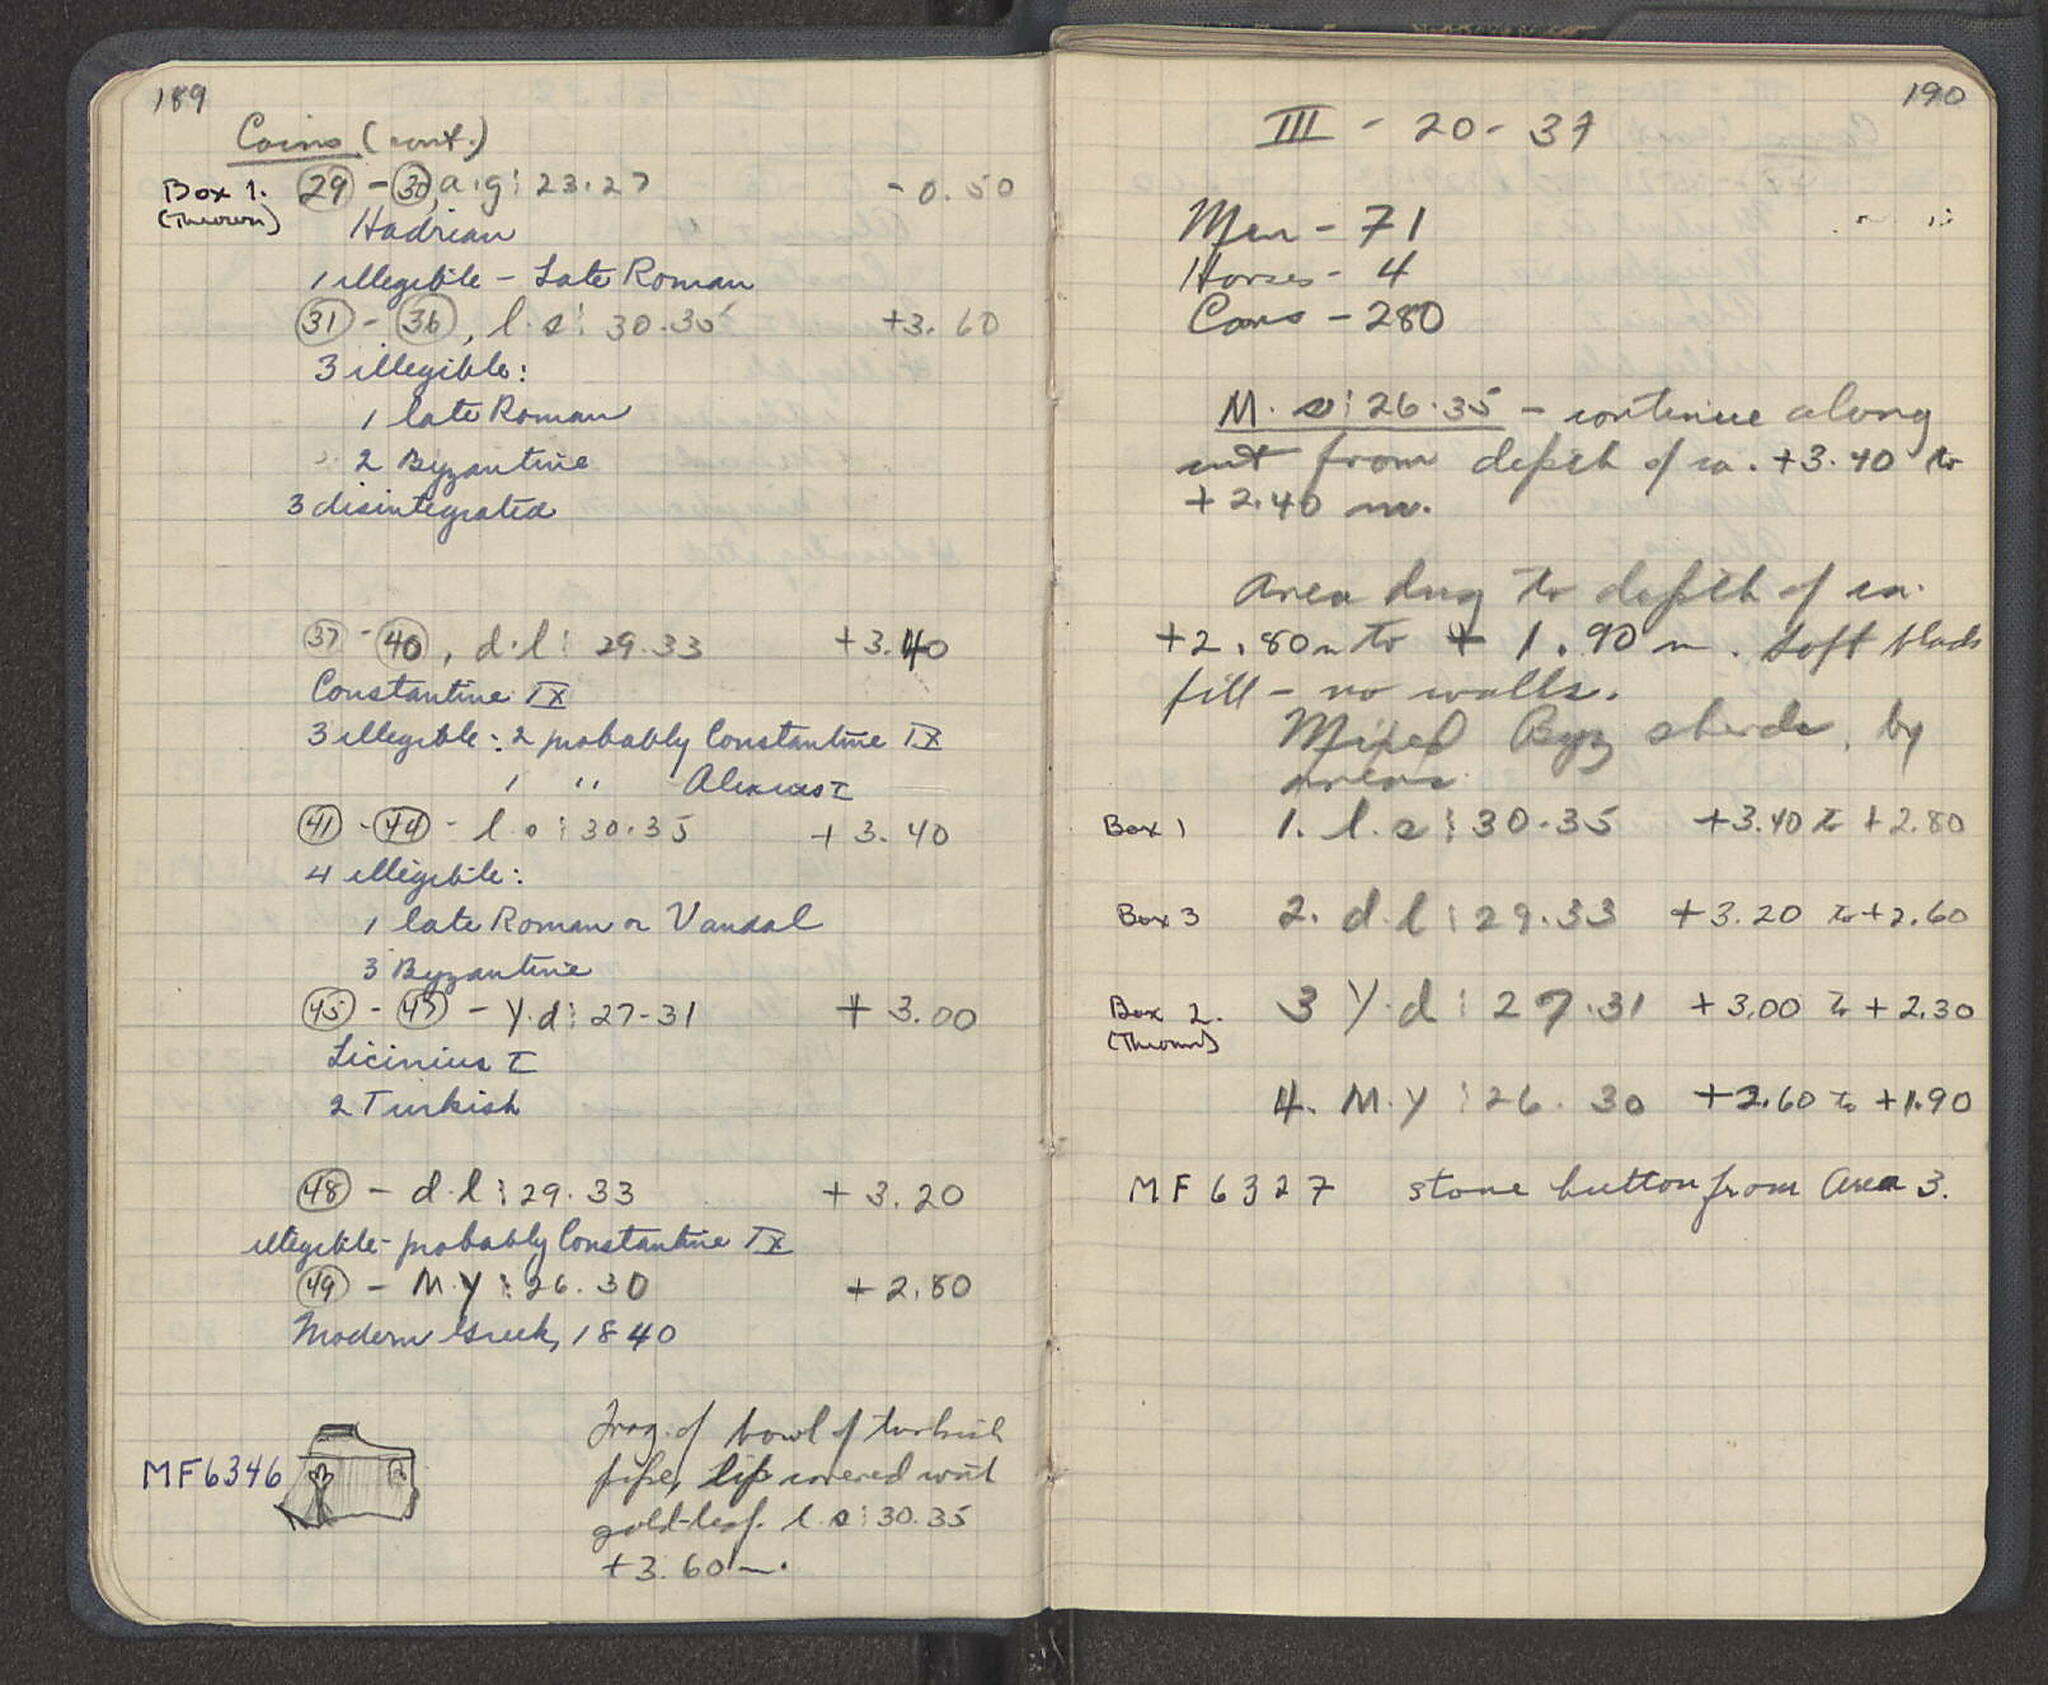 189
Coins (cont.)
Box 1. (29) - (30), a.g: 23.27 - 0.50
(Thrown)
Hadrian
1 illegible - Late Roman
(31) - (36), l.s: 30.35 +3.60
3 illegible:
1 late Roman
2 Byzantine
3 disintegrated
(37) - (40), d.l: 29.33 +3.40
Constantine IX
3 illegible: 2 probably Constantine IX
1 " Alexius I
(41) - (44) - l.s: 30.35 +3.40
4 illegible:
1 late Roman or Vandal
3 Byzantine
(45) - (47) - Y.d: 27-31 +3.00
Licinius I
2 Turkish
(48) - d.l: 29.33 +3.20
illegible - probably Constantine IX
(49) - M.Y: 26.30 +2.80
Modern Greek, 1840
MF6346
Frag. of bowl of turkish
pipe, lip covered with
gold-leaf. l.s: 30.35
+3.60 m.
190
III - 20 - 37
Men - 71
Horses - 4
Cars - 280
M.s: 26.35 - continue along
cut from depth of ca. +3.40 to
+2.40 m.
Area dug to depth of ca.
+2.80 m to +1.90 m. Soft black
fill - no walls.
Mixed Byz sherds, by
areas
Box 1 1. l.s: 30.35 +3.40 to +2.80
Box 3 2. d.l: 29.33 +3.20 to +2.60
Box 2. 3 Y.d: 27.31 +3.00 to +2.30
(Thrown)
4. M.Y: 26.30 +2.60 to +1.90
MF 6327 stone button from Area 3.